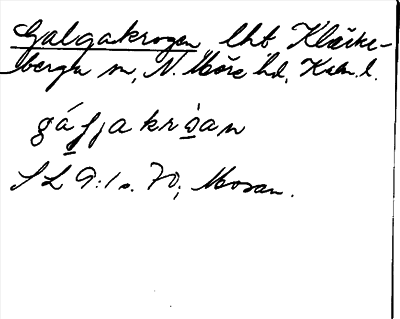 Galgakrogen lht Kläcke-
berga sn, N. Möre hd, Kalm. l.
gáljakròan
SL 9:1 s. 70; Mosan.